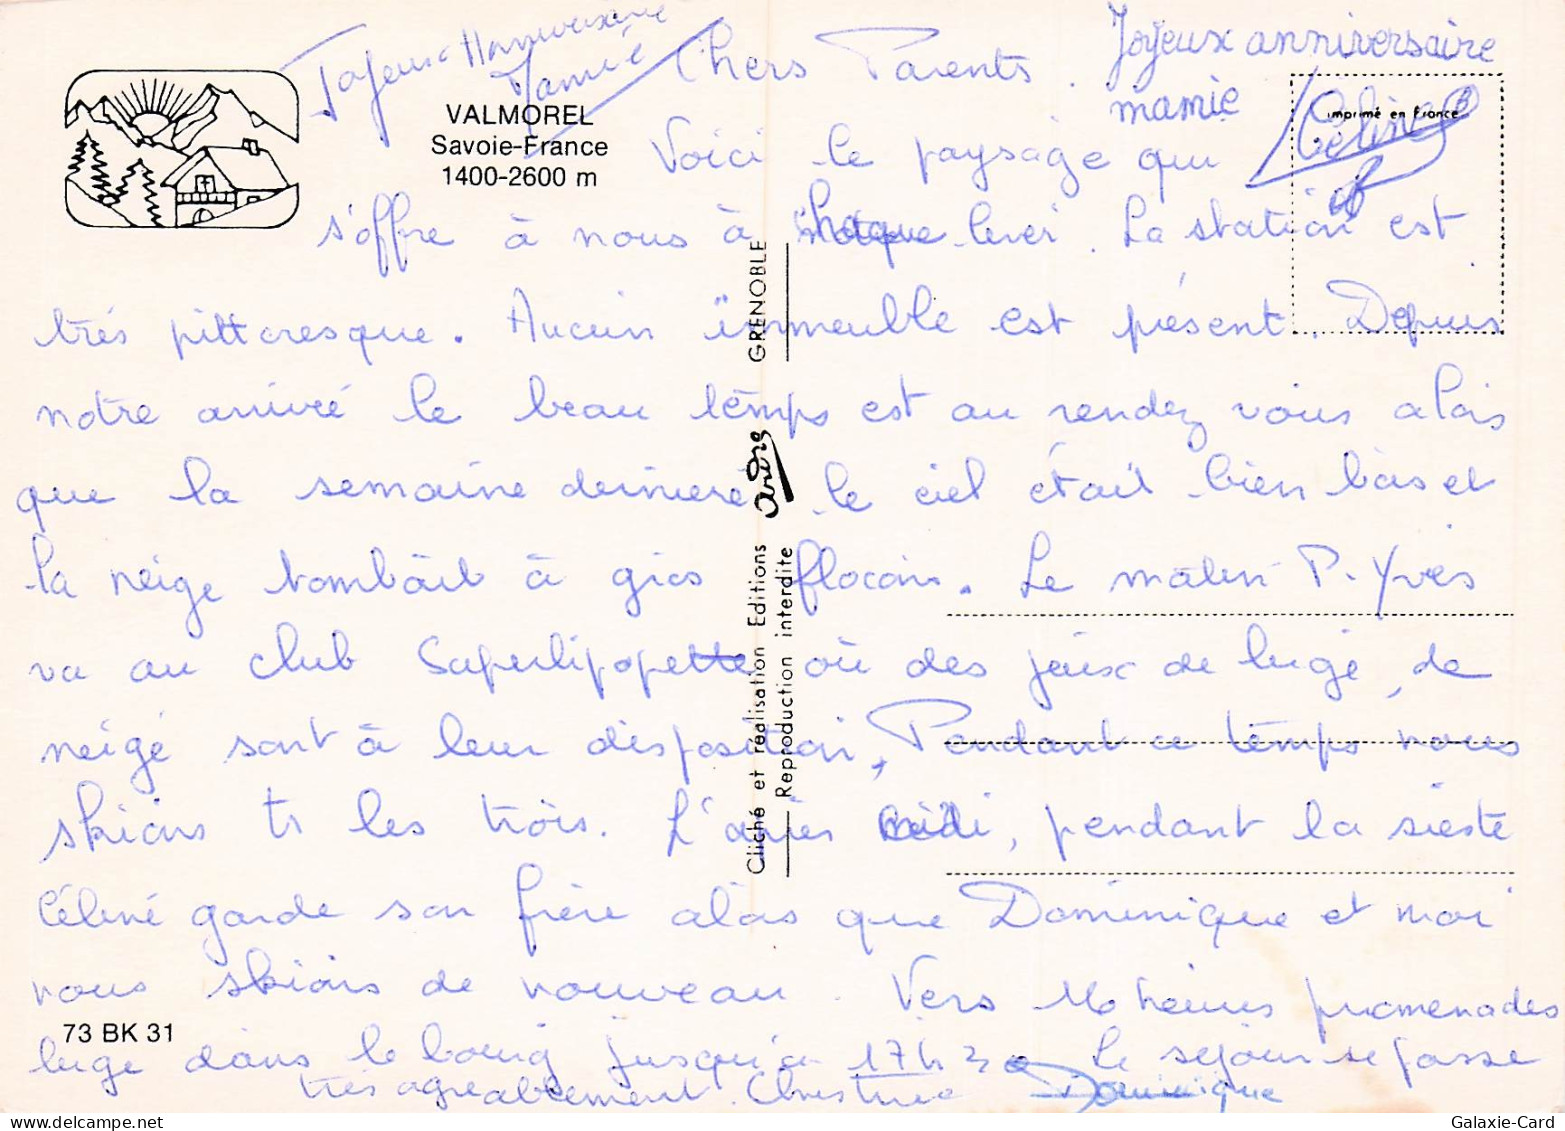 Joyeux Anniversaire
Mamie
Chers Parents.
Joyeux anniversaire
mamie
Céline
imprimé en France
VALMOREL
Savoie-France
1400-2600 m
Voici le paysage qui
s'offre à nous à chaque lever. La station est
très pittoresque. Aucun immeuble est présent. Depuis
notre arrivée le beau temps est au rendez vous alors
que la semaine dernière le ciel était bien bas et
la neige tombait à gros flocons. Le matin P. Yves
va au club Saperlipopette où des jeux de luge, de
neige sont à leur disposition, Pendant ce temps nous
skions ts les trois. L'après midi, pendant la sieste
Céline garde son frère alors que Dominique et moi
nous skions de nouveau. Vers 16 heures promenades
luge dans le bourg jusqu'à 17h30 Le séjour se passe
très agréablement. Christine Dominique
73 BK 31
Cliché et réalisation Editions André GRENOBLE
Reproduction interdite
Galaxie-Card